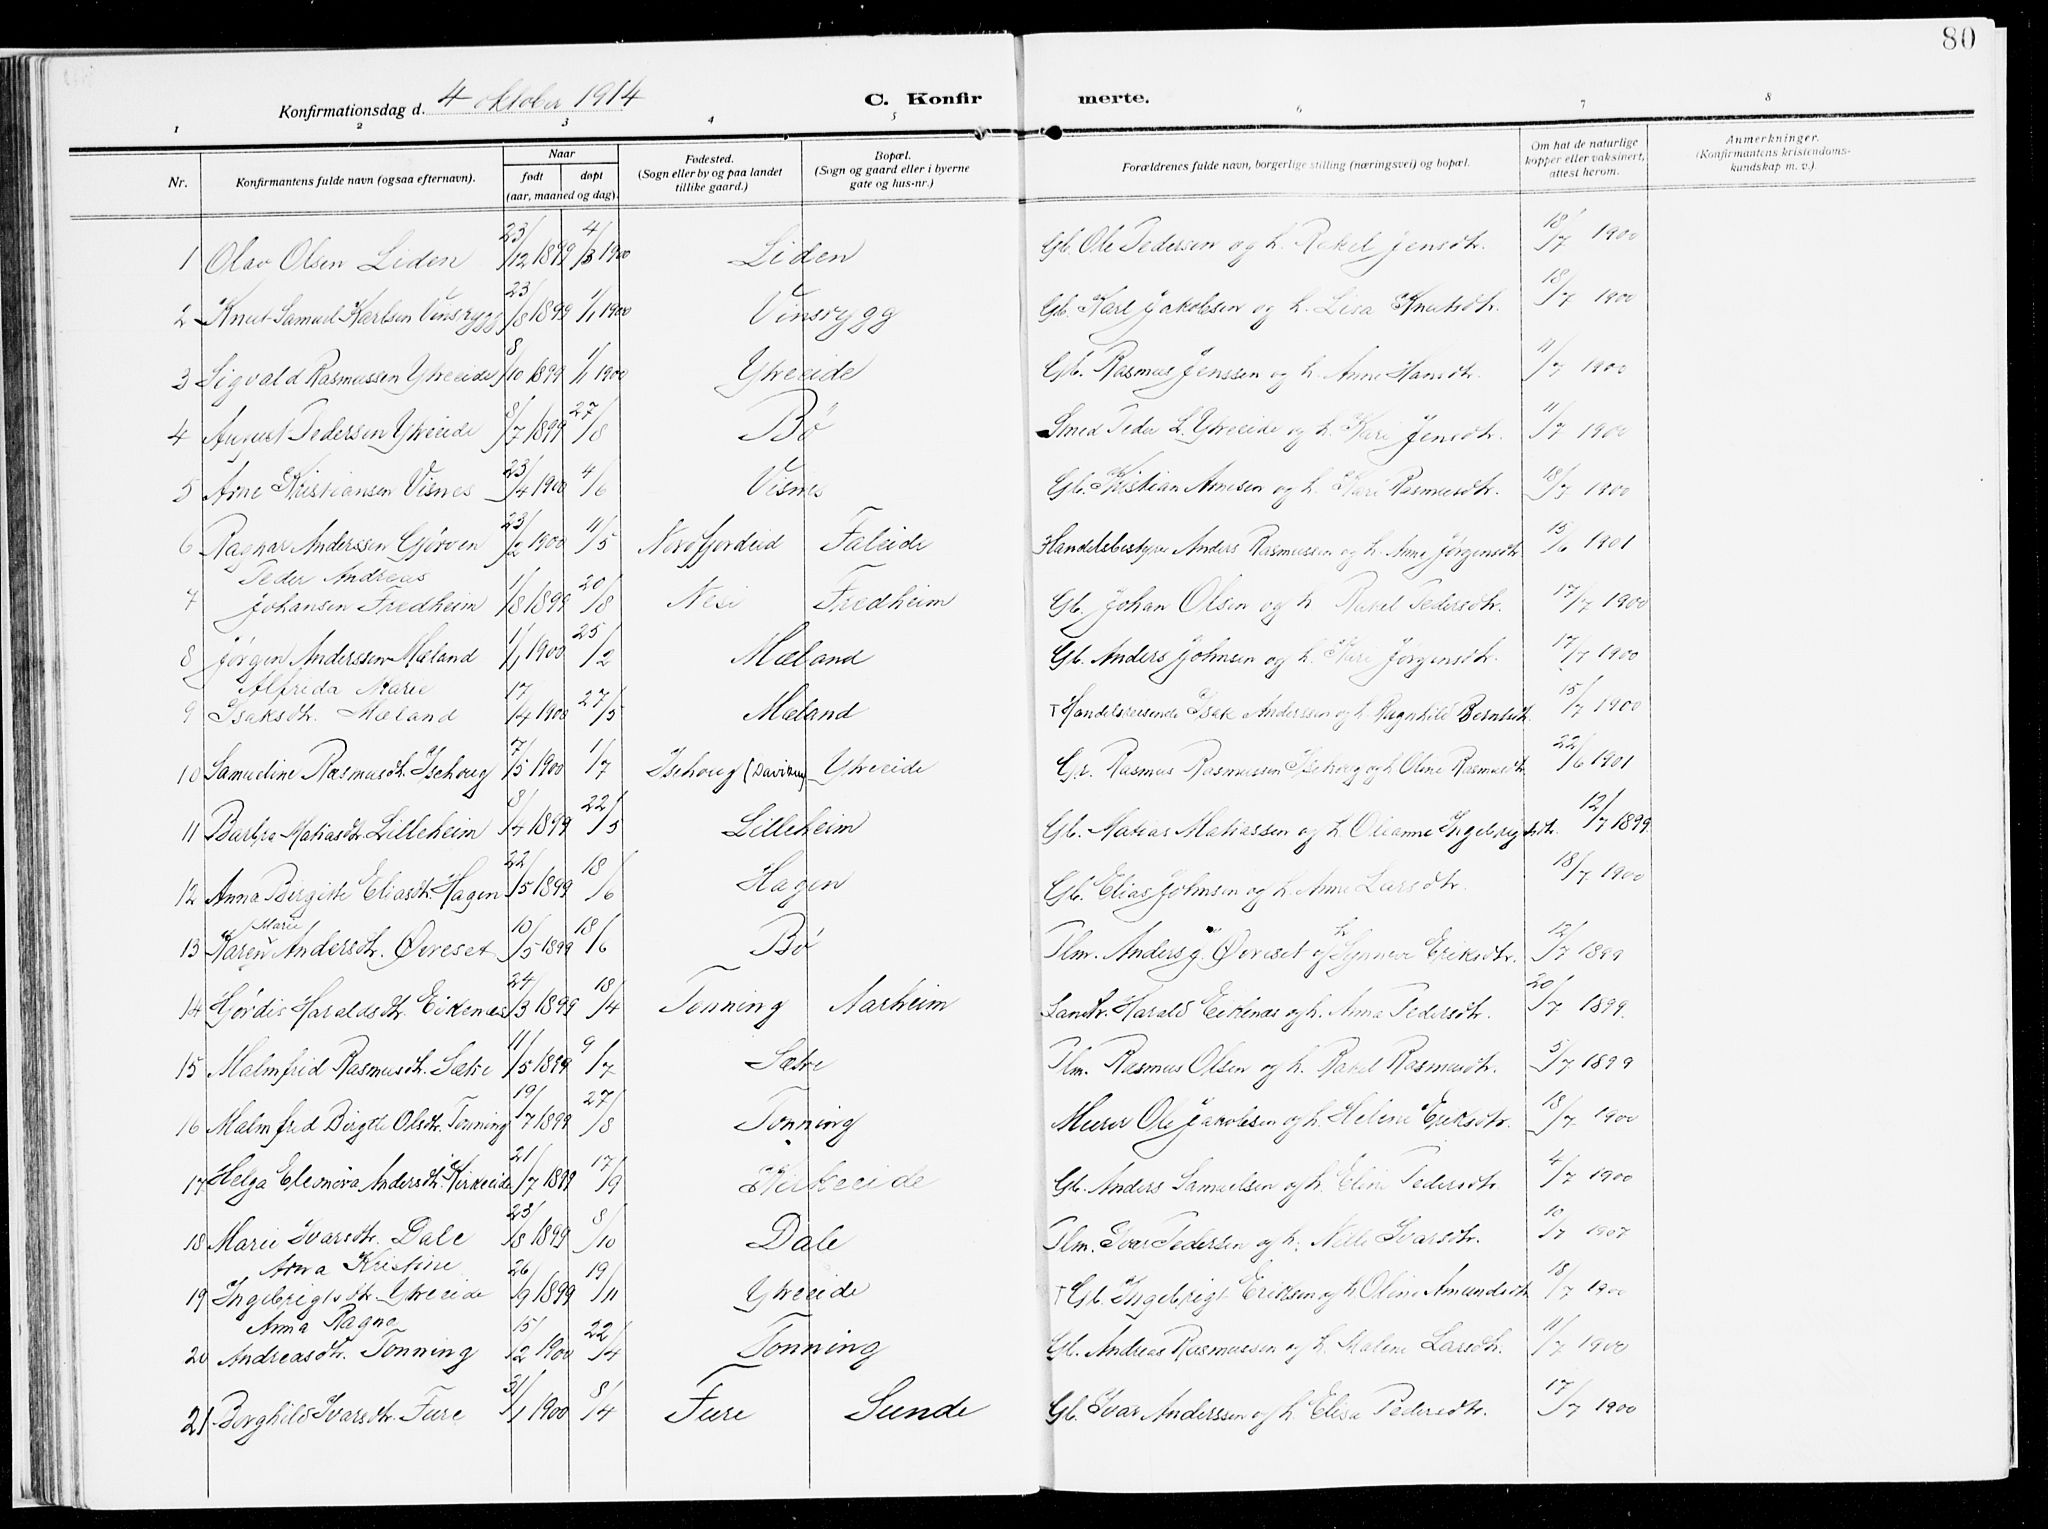 80
Konfirmationsdag d. 4 oktober 1914 C. Konfir merte.
1 2 3 4 5 6 7 8
Nr. Konfirmantens fulde navn (ogsaa efternavn). Naar født døpt (aar, maaned og dag). Fødested. (Sogn eller by og paa landet tillike gaard.) Bopæl. (Sogn og gaard eller i byerne gate og hus-nr.) Forældrenes fulde navn, borgerlige stilling (næringsvei) og bopæl. Om hat de naturlige kopper eller vaksinert, attest herom. Anmerkninger. (Konfirmantens kristendomskundskap m. v.)
1 Olav Olsen Liden 23/12 1899 4/3 1900 Liden Gb. Ole Pedersen og h. Rakel Jensdtr. 18/7 1900
2 Knut Samuel Karlsen Vinsrygg 23/8 1899 1/1 1900 Vinsrygg Gb. Karl Jakobsen og h. Lisa Knutsdtr. 18/7 1900
3 Sigvald Rasmussen Ytreeide 8/10 1899 1/1 1900 Ytreeide Gb. Rasmus Jenssen og h. Anne Hansdtr. 11/7 1900
4 August Pedersen Ytreeide 8/7 1899 27/8 Bø Smed Peder L. Ytreeide og h. Kari Jensdtr. 11/7 1900
5 Arne Kristiansen Visnes 23/4 1900 4/6 Visnes Gb. Kristian Arnesen og h. Kari Rasmusdtr. 18/7 1900
6 Ragnar Anderssen Gjørven 23/2 1900 11/5 Nordfjordeid Faleide Handelsbestyrer Anders Rasmussen og h. Anne Jørgensdtr. 15/6 1901
7 Peder Andreas Johansen Fredheim 1/8 1899 20/8 Nesi Fredheim Gb. Johan Olsen og h. Rakel Pedersdtr. 17/7 1900
8 Jørgen Anderssen Mæland 1/1 1900 25/2 Mæland Gb. Anders Johnsen og h. Kari Jørgensdtr. 17/7 1900
9 Alfrida Marie Isaksdtr. Mæland 17/4 1900 27/5 Mæland † Handelsreisende Isak Anderssen og h. Ragnhild Berntsdtr. 15/7 1900
10 Samueline Rasmusdtr. Isehoug 7/5 1900 1/7 Isehoug (Daviken) Ytreeide Gr. Rasmus Rasmussen Isehoug og h. Oline Rasmusdtr 22/6 1901
11 Barbra Matiasdtr. Lilleheim 8/4 1899 22/5 Lilleheim Gb. Matias Matiassen og h. Olianne Ingebrigtsdtr. 12/7 1899
12 Anna Birgitte Eliasdtr. Hagen 22/5 1899 18/6 Hagen Gb. Elias Johnsen og h. Anne Larsdtr. 18/7 1900
13 Karen Marie Andersdtr. Øvreset 10/5 1899 18/6 Bø Plm. Anders J. Øvreset og h. Synneve Eriksdtr. 12/7 1899
14 Hjørdis Haraldsdtr. Eikenæs 24/3 1899 18/4 Tonning Aarheim Landh. Harald Eikenæs og h. Anna Pedersdtr. 20/7 1899.
15 Malmfrid Rasmusdtr. Sætre 11/5 1899 9/7 Sætre Plm. Rasmus Olsen og h. Rakel Rasmusdtr. 5/7 1899
16 Malmfrid Birgitte Olsdtr. Tonning 19/7 1899 27/8 Tonning Murer Ole Jakobsen og h. Helene Eriksdtr. 18/7 1900
17 Helga Eleonora Andersdtr. Kirkeeide 21/7 1899 17/9 Kirkeeide Gb. Anders Samuelsen og h. Eline Pedersdtr. 4/7 1900
18 Marie Ivarsdtr. Dale 23/8 1899 8/10 Dale Plm. Ivar Pedersen og h. Nille Ivarsdtr. 10/7 1907
19 Anna Kristine Ingebrigtsdtr Ytreeide 26/9 1899 19/11 Ytreeide † Gb. Ingebrigt Eriksen og h. Oline Amundsdtr 18/7 1900
20 Anna Ragna Andreasdtr. Tonning 15/2 1900 22/4 Tonning Gb. Andreas Rasmussen og h. Malene Larsdtr. 11/7 1900
21 Borghild Ivarsdtr. Fure 31/1 1900 8/4 Fure Sunde Gb. Ivar Anderssen og h. Elisa Pedersdtr. 17/7 1900